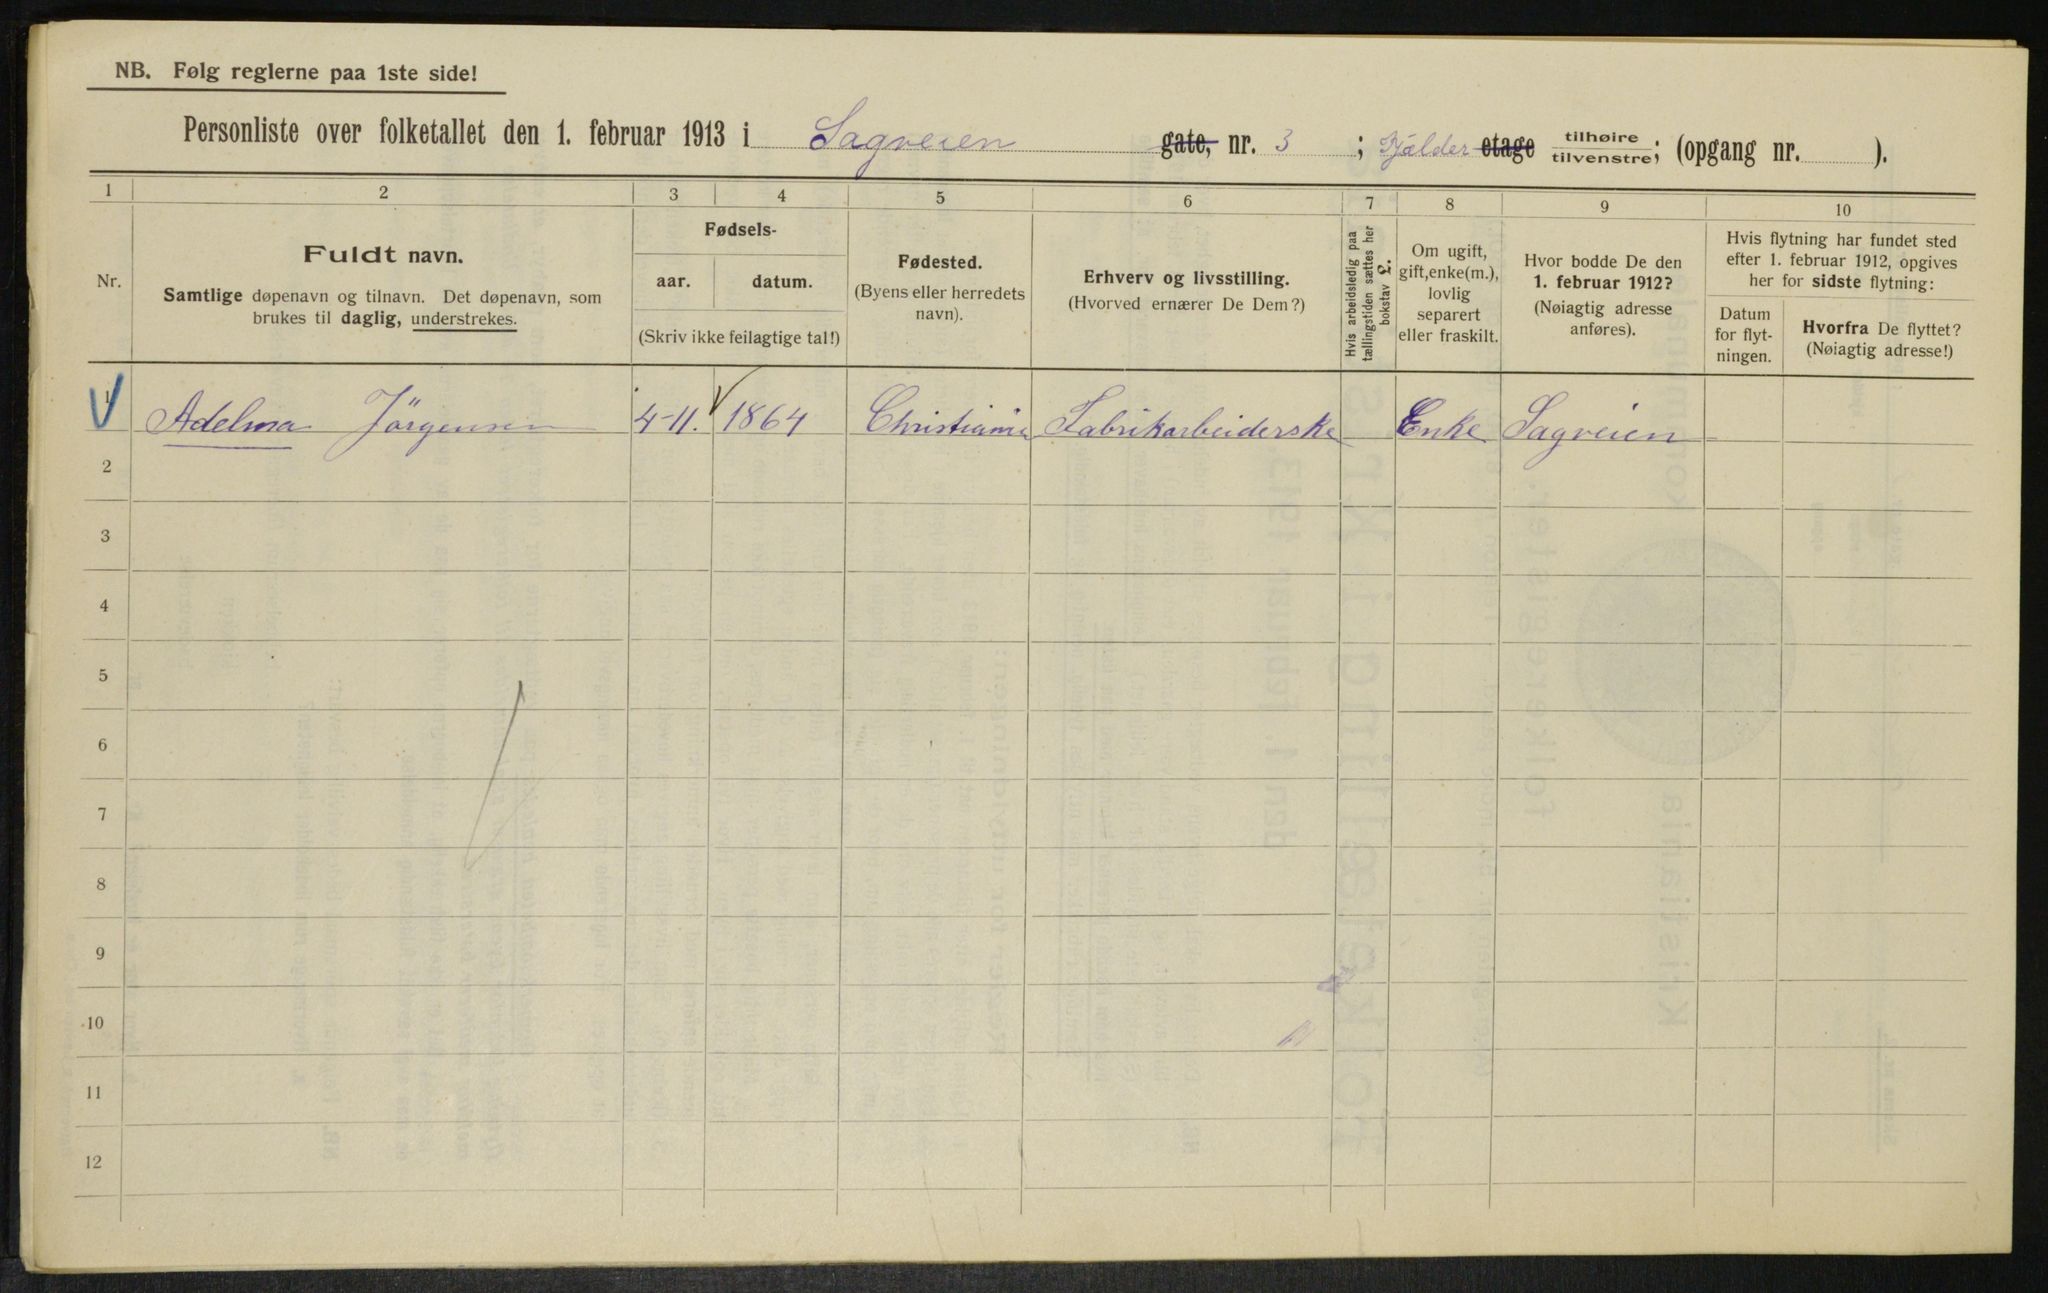 NB. Følg reglerne paa 1ste side!
Personliste over folketallet den 1. februar 1913 i Sagveien gate, nr. 3 ; Kjælder etage tilhøire tilvenstre; (opgang nr. ).
1 2 3 4 5 6 7 8 9 10
Nr.
Fuldt navn.
Samtlige døpenavn og tilnavn. Det døpenavn, som
brukes til daglig, understrekes.
Fødsels-
aar. datum.
(Skriv ikke feilagtige tal!)
Fødested.
(Byens eller herredets
navn).
Erhverv og livsstilling.
(Hvorved ernærer De Dem?)
Hvis arbeidsledig paa
tællingstiden sættes her
bokstav L.
Om ugift,
gift, enke(m.),
lovlig
separert
eller fraskilt.
Hvor bodde De den
1. februar 1912?
(Nøiagtig adresse
anføres).
Hvis flytning har fundet sted
efter 1. februar 1912, opgives
her for sidste flytning:
Datum
for flyt-
ningen.
Hvorfra De flyttet?
(Nøiagtig adresse!)
1 Adelma Jörgensen 4-11. 1864 Christiania Fabrikarbeiderske Enke Sagveien
2
3
4
5
6
7
8
9
10
11
12